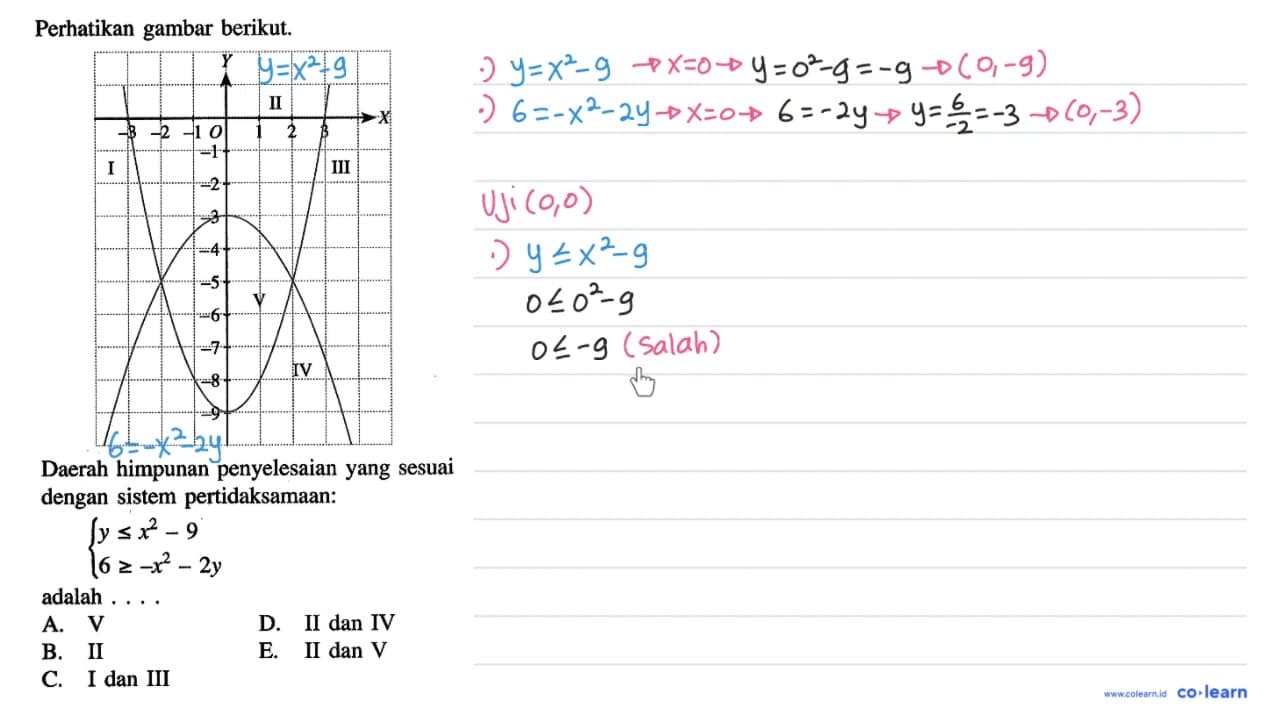 Perhatikan gambar berikut.
Y
y=x²-9
II
X
-3 -2 -1 O 1 2 3
I
III
-1
-2
-3
-4
-5
V
-6
-7
IV
-8
-9
6=-x²-2y
Daerah himpunan penyelesaian yang sesuai
dengan sistem pertidaksamaan:
y ≤ x² - 9
6 ≥ -x² - 2y
adalah . . . .
A. V
B. II
C. I dan III
D. II dan IV
E. II dan V
·) y=x²-9 → x=0 → y=0²-9=-9 → (0,-9)
·) 6=-x²-2y → x=0 → 6=-2y → y=6/-2=-3 → (0,-3)
Uji (0,0)
·) y ≤ x²-9
0 ≤ 0²-9
0 ≤ -9 (salah)
www.colearn.id co·learn